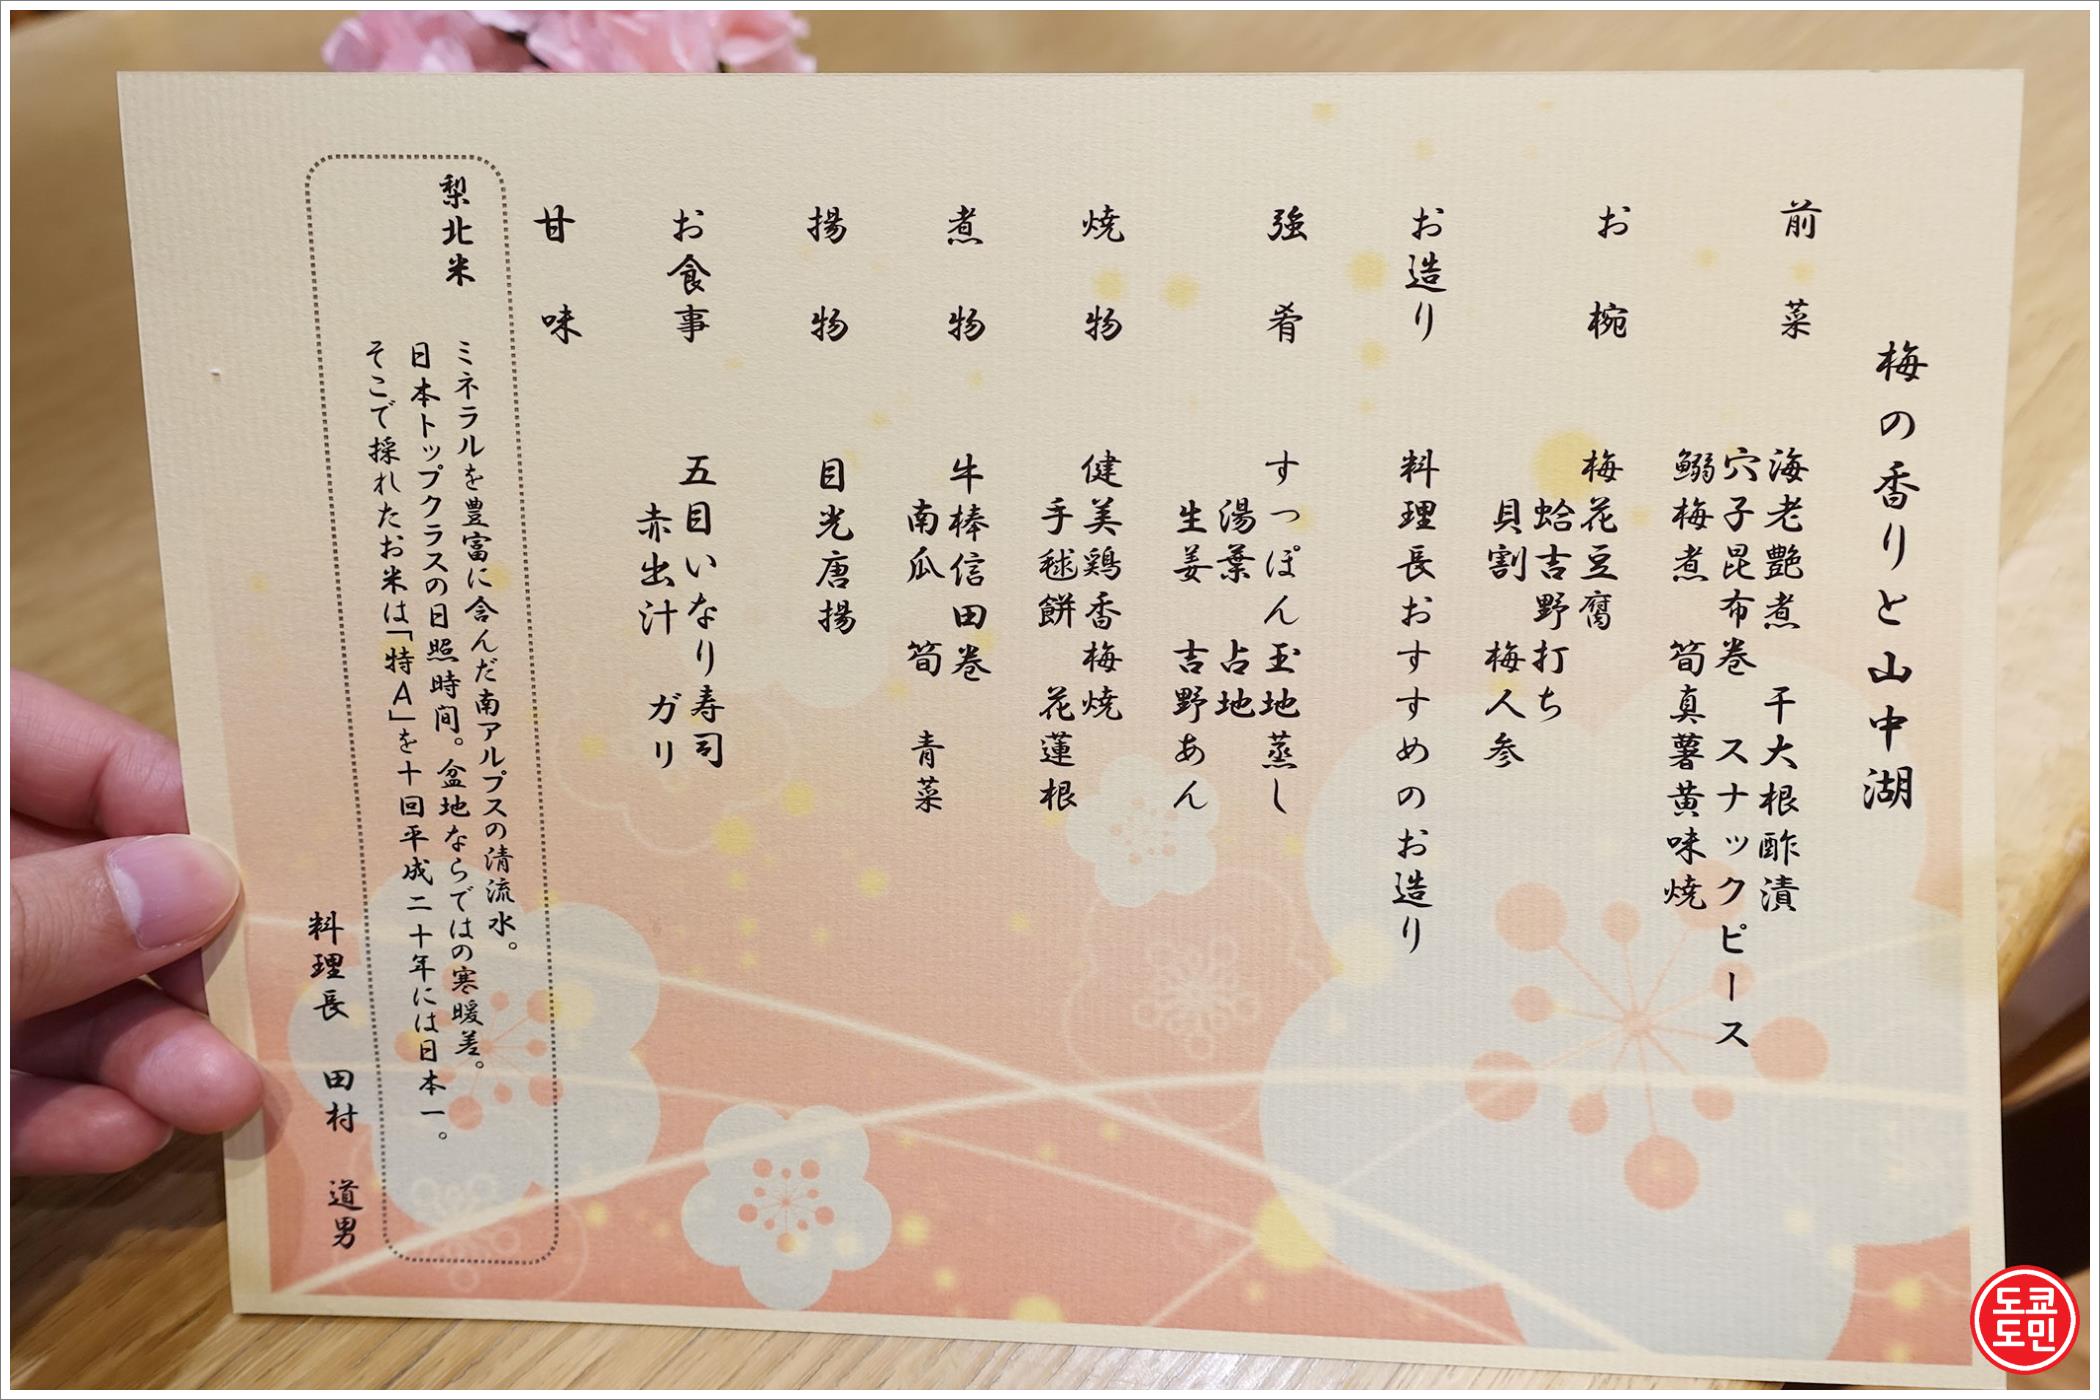 梅の香りと山中湖
前菜
海老艶煮　干大根酢漬
穴子昆布巻　スナックピース
鰯梅煮　筍真薯黄味焼
お椀
梅花豆腐
蛤吉野打ち
貝割　梅人参
お造り
料理長おすすめのお造り
強肴
すっぽん玉地蒸し
湯葉　占地
生姜　吉野あん
焼物
健美鶏香梅焼
手毬餅　花蓮根
煮物
牛棒信田巻
南瓜　筍　青菜
揚物
目光唐揚
お食事
五目いなり寿司
赤出汁　ガリ
甘味
梨北米
ミネラルを豊富に含んだ南アルプスの清流水。
日本トップクラスの日照時間。盆地ならではの寒暖差。
そこで採れたお米は「特A」を十回平成二十年には日本一。
料理長　田村　道男
도쿄
도민